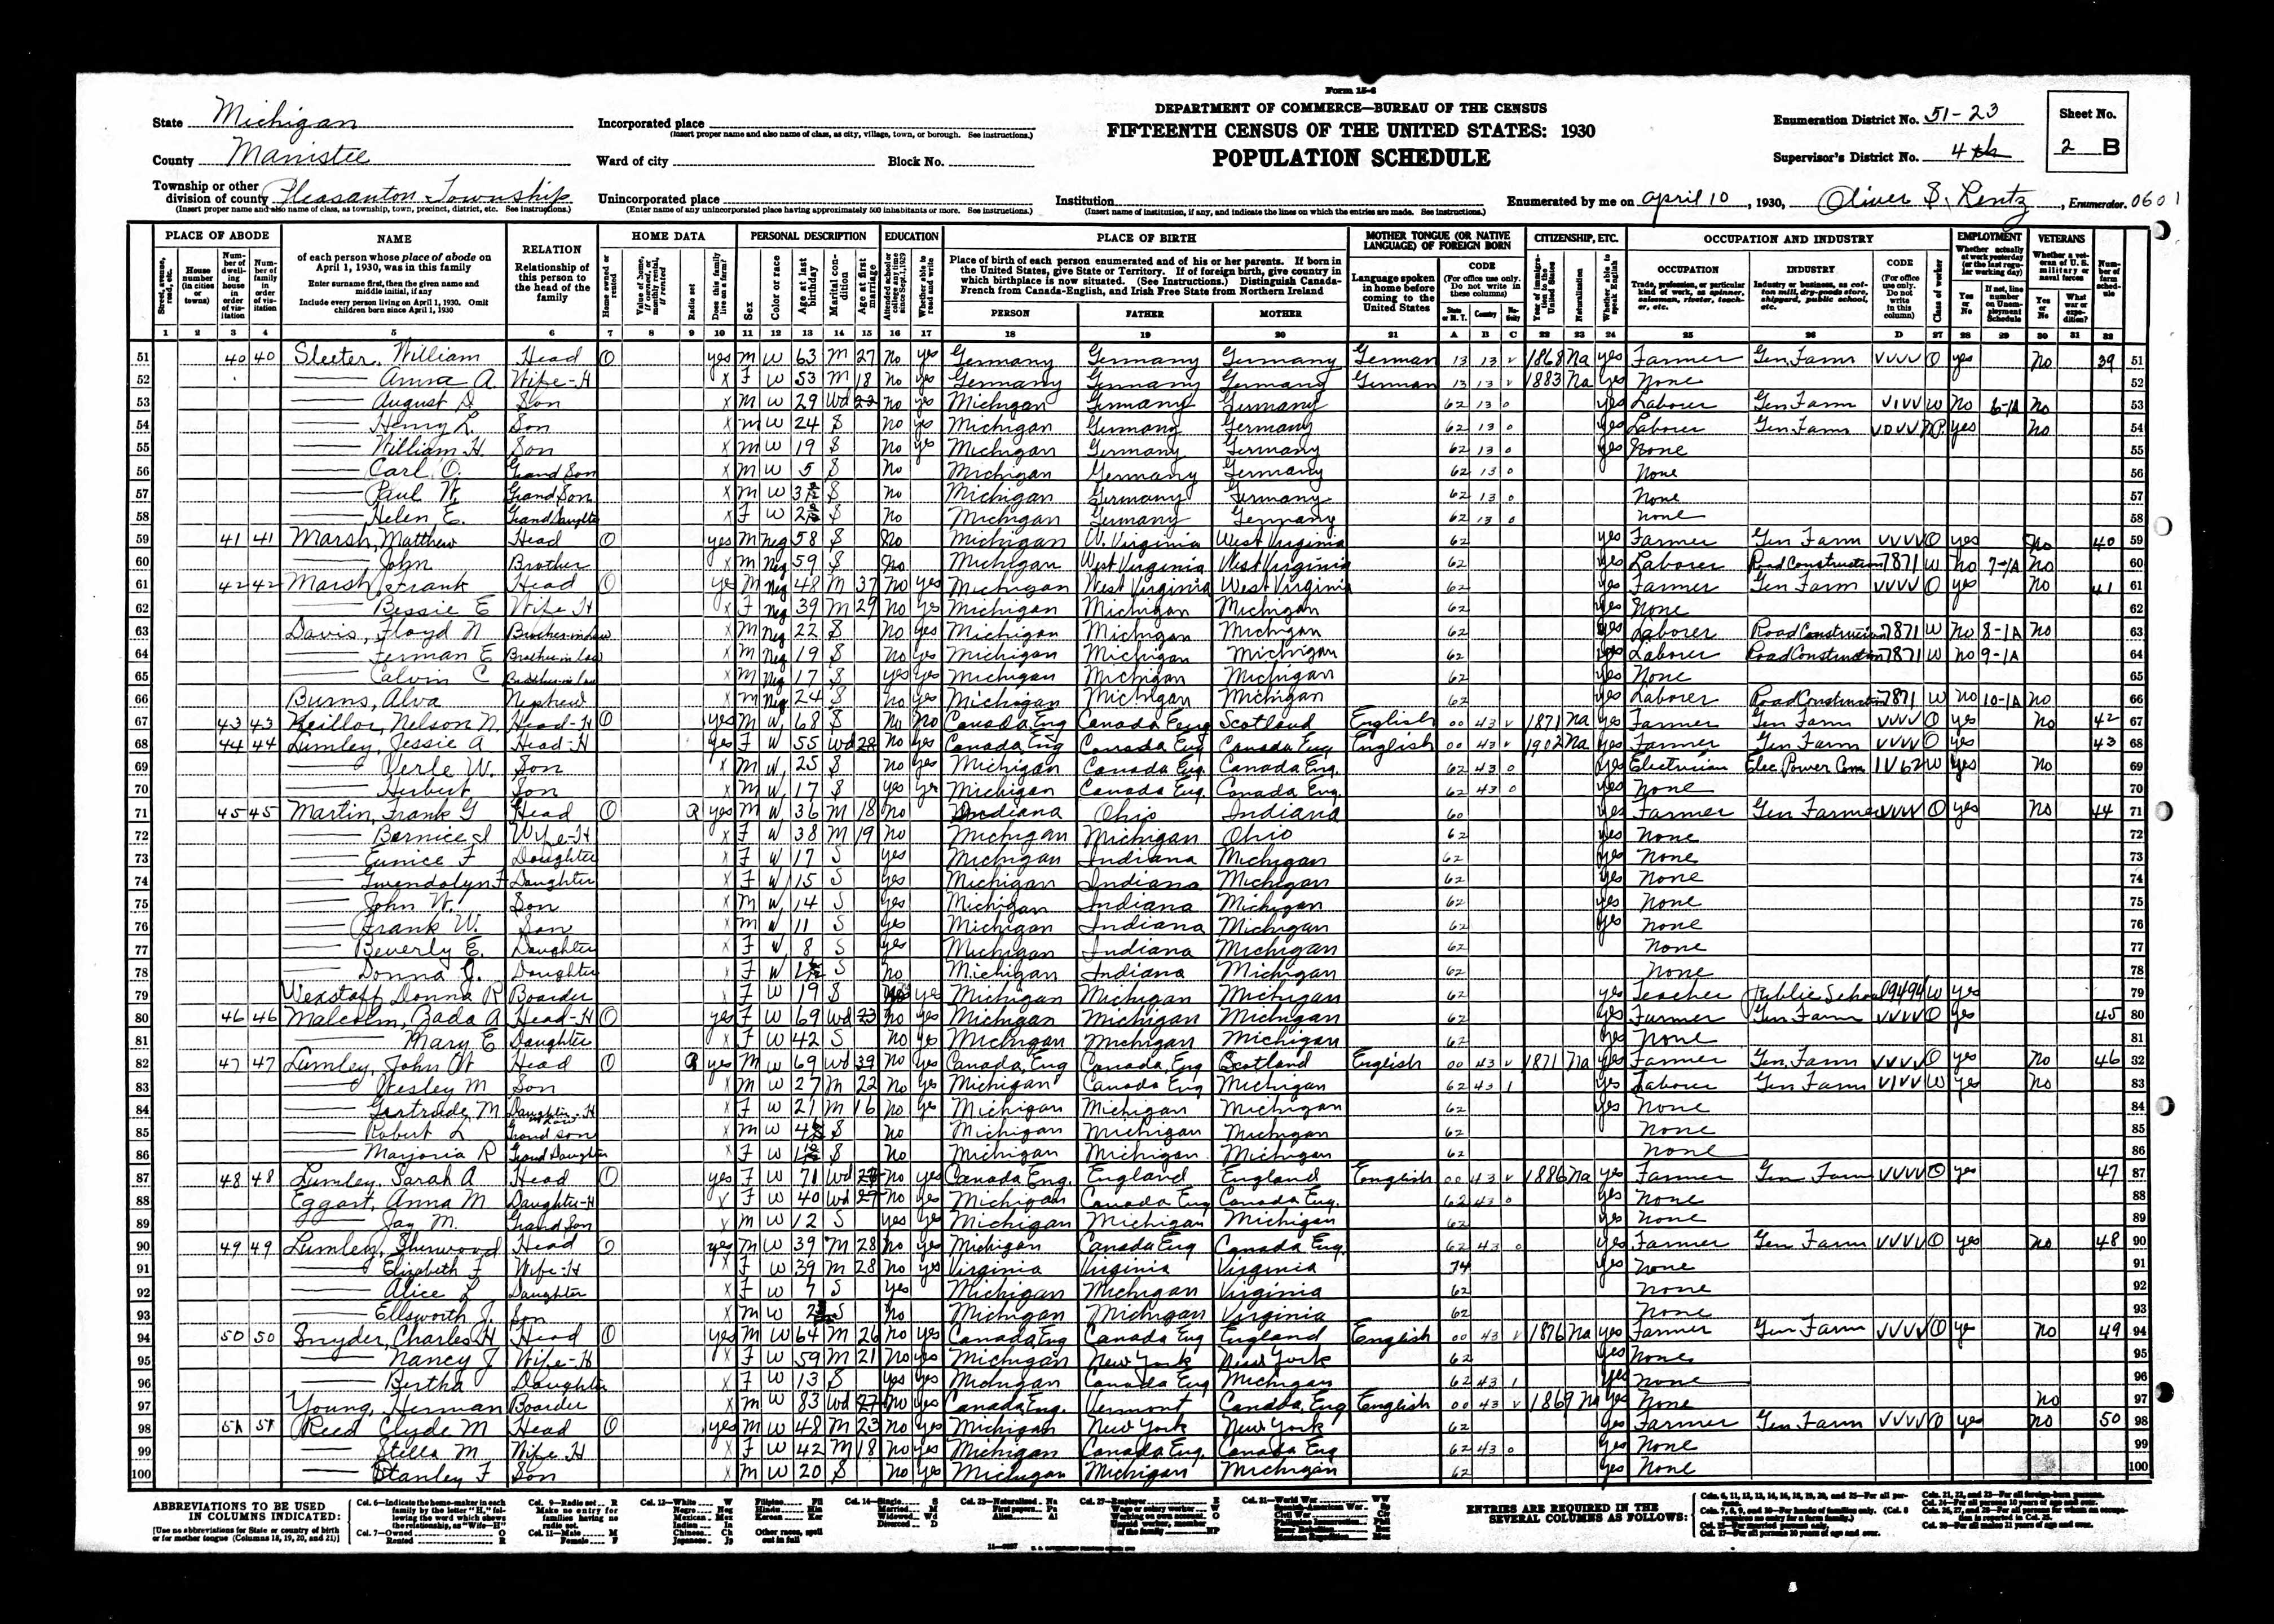 Form 15-6
DEPARTMENT OF COMMERCE—BUREAU OF THE CENSUS
FIFTEENTH CENSUS OF THE UNITED STATES: 1930
POPULATION SCHEDULE
State Michigan
County Manistee
Township or other division of county Pleasanton Township
(Insert proper name and also name of class, as township, town, precinct, district, etc. See instructions.)
Incorporated place
(Insert proper name and also name of class, as city, village, town, or borough. See instructions.)
Ward of city Block No.
Unincorporated place
(Enter name of any unincorporated place having approximately 500 inhabitants or more. See instructions.)
Institution
(Insert name of institution, if any, and indicate the lines on which the entries are made. See instructions.)
Enumeration District No. 51-23
Supervisor's District No. 4th
Sheet No. 2 B
Enumerated by me on April 10, 1930, Oliver S. Lentz, Enumerator. 0601
PLACE OF ABODE NAME RELATION HOME DATA PERSONAL DESCRIPTION EDUCATION PLACE OF BIRTH MOTHER TONGUE (OR NATIVE LANGUAGE) OF FOREIGN BORN CITIZENSHIP, ETC. OCCUPATION AND INDUSTRY EMPLOYMENT VETERANS
51 40 40 Sleeter, William Head O yes M W 63 M 27 No yes Germany Germany Germany German 13 13 V 1868 Na yes Farmer Gen Farm VVVV O yes No 39 51
52 Anna A. Wife-H X F W 53 M 18 No yes Germany Germany Germany German 13 13 V 1883 Na yes None 52
53 August D Son X M W 29 Wd 23 No yes Michigan Germany Germany 62 13 0 yes Laborer Gen Farm VIVV W No 6-1A No 53
54 Henry L. Son X M W 24 S No yes Michigan Germany Germany 62 13 0 yes Laborer Gen Farm VOVV NP yes No 54
55 William H. Son X M W 19 S No yes Michigan Germany Germany 62 13 0 yes None 55
56 Carl O. Grand Son X M W 5 S No Michigan Germany Germany 62 13 0 None 56
57 Paul W. Grand Son X M W S No Michigan Germany Germany 62 13 0 None 57
58 Helen E. Grand Daughter X F W S No Michigan Germany Germany 62 13 0 None 58
59 41 41 Marsh, Matthew Head O yes M Neg 58 S No Michigan W. Virginia West Virginia 62 yes Farmer Gen Farm VVVV O yes No 40 59
60 John Brother X M Neg 59 S No Michigan West Virginia West Virginia 62 yes Laborer Road Construction 7871 W No 7-1A No 60
61 42 42 Marsh, Frank Head O yes M Neg 48 M 37 No yes Michigan West Virginia West Virginia 62 yes Farmer Gen Farm VVVV O yes No 41 61
62 Bessie E Wife H X F Neg 39 M 29 No yes Michigan Michigan Michigan 62 yes None 62
63 Davis, Floyd N Brother-in-law X M Neg 22 S No yes Michigan Michigan Michigan 62 yes Laborer Road Construction 7871 W No 8-1A No 63
64 Ferman E Brother in law X M Neg 19 S No yes Michigan Michigan Michigan 62 yes Laborer Road Construction 7871 W no 9-1A 64
65 Calvin C Brother in law X M Neg 17 S yes yes Michigan Michigan Michigan 62 yes None 65
66 Burns, Alva Nephew X M Neg 24 S no yes Michigan Michigan Michigan 62 yes Laborer Road Construction 7871 W no 10-1A no 66
67 43 43 Keillor, Nelson N. Head-H O yes M W 68 S No No Canada Eng Canada Eng Scotland English 00 43 V 1871 Na yes Farmer Gen Farm VVVV O yes No 42 67
68 44 44 Lumley, Jessie A Head-H yes F W 55 Wd 28 No yes Canada Eng Canada Eng Canada Eng English 00 43 V 1902 Na yes Farmer Gen Farm VVVV O yes 43 68
69 Verle W. Son X M W 25 S no yes Michigan Canada Eng. Canada Eng. 62 43 0 yes Electrician Elec Power Com 1V62 W yes No 69
70 Herbert Son X M W 17 S yes yes Michigan Canada Eng. Canada Eng. 62 43 0 yes None 70
71 45 45 Martin, Frank G Head O R yes M W 36 M 18 no Indiana Ohio Indiana 60 yes Farmer Gen Farmer VVVV O yes No 44 71
72 Bernice I Wife-H X F W 38 M 19 no Michigan Michigan Ohio 62 yes None 72
73 Eunice F Daughter X F W 17 S yes Michigan Indiana Michigan 62 yes None 73
74 Gwendolyn F Daughter X F W 15 S yes Michigan Indiana Michigan 62 yes None 74
75 John W. Son X M W 14 S yes Michigan Indiana Michigan 62 yes None 75
76 Frank W. Son X M W 11 S yes Michigan Indiana Michigan 62 yes None 76
77 Beverly E. Daughter X F W 8 S yes Michigan Indiana Michigan 62 None 77
78 Donna J. Daughter X F W S no Michigan Indiana Michigan 62 None 78
79 Donna R Boarder X F W 19 S yes Michigan Michigan Michigan 62 yes Teacher Public School 9494 W yes 79
80 46 46 Malcolm, Zada A Head-H O yes F W 69 Wd 23 no yes Michigan Michigan Michigan 62 yes Farmer Gen Farm VVVV O yes 45 80
81 Mary E Daughter X F W 42 S No yes Michigan Michigan Michigan 62 yes None 81
82 47 47 Lumley, John W Head O R yes M W 69 Wd 39 no yes Canada, Eng Canada, Eng Scotland English 00 43 V 1871 na yes Farmer Gen Farm VVVV O yes no 46 82
83 Wesley M Son X M W 27 M 22 No yes Michigan Canada Eng Michigan 62 43 1 yes Laborer Gen Farm VIVV W yes No 83
84 Gertrude M Daughter-H in law X F W 21 M 16 No yes Michigan Michigan Michigan 62 yes None 84
85 Robert L Grandson X M W S no Michigan Michigan Michigan 62 None 85
86 Marjoria R Grand Daughter X F W S No Michigan Michigan Michigan 62 None 86
87 48 48 Lumley, Sarah A Head O yes F W 71 Wd no yes Canada Eng. England England English 00 43 V 1886 Na yes Farmer Gen Farm VVVV O yes 47 87
88 Eggart, Anna M Daughter-H X F W 40 Wd 29 no yes Michigan Canada Eng Canada Eng. 62 43 0 yes None 88
89 Jay M. Grand Son X M W 12 S yes yes Michigan Michigan Michigan 62 yes None 89
90 49 49 Lumley, Sherwood Head O yes M W 39 M 28 no yes Michigan Canada Eng Canada Eng. 62 43 0 yes Farmer Gen Farm VVVV O yes no 48 90
91 Elizabeth F Wife-H X F W 39 M 28 no yes Virginia Virginia Virginia 74 yes None 91
92 Alice L Daughter X F W 7 S yes Michigan Michigan Virginia 62 None 92
93 Ellsworth J. Son X M W S no Michigan Michigan Virginia 62 None 93
94 50 50 Snyder, Charles H Head O yes M W 64 M 26 no yes Canada, Eng Canada Eng England English 00 43 V 1876 Na yes Farmer Gen Farm VVVV O yes No 49 94
95 Nancy J Wife-H X F W 59 M 21 No yes Michigan New York New York 62 yes None 95
96 Bertha Daughter X F W 13 S yes yes Michigan Canada Eng Michigan 62 43 1 yes None 96
97 Young, Herman Boarder X M W 83 Wd 27 no yes Canada, Eng. Vermont Canada, Eng English 00 43 V 1869 Na yes None No 97
98 51 51 Reed Clyde M Head O yes M W 48 M 23 no yes Michigan New York New York 62 yes Farmer Gen Farm VVVV O yes no 50 98
99 Stella M Wife H X F W 42 M 18 no yes Michigan Canada Eng. Canada Eng 62 43 0 yes None 99
100 Stanley F Son X M W 20 S no yes Michigan Michigan Michigan 62 yes None 100
ABBREVIATIONS TO BE USED IN COLUMNS INDICATED:
[Use no abbreviations for State or country of birth or for mother tongue (Columns 18, 19, 20, and 21)]
ENTRIES ARE REQUIRED IN THE SEVERAL COLUMNS AS FOLLOWS: